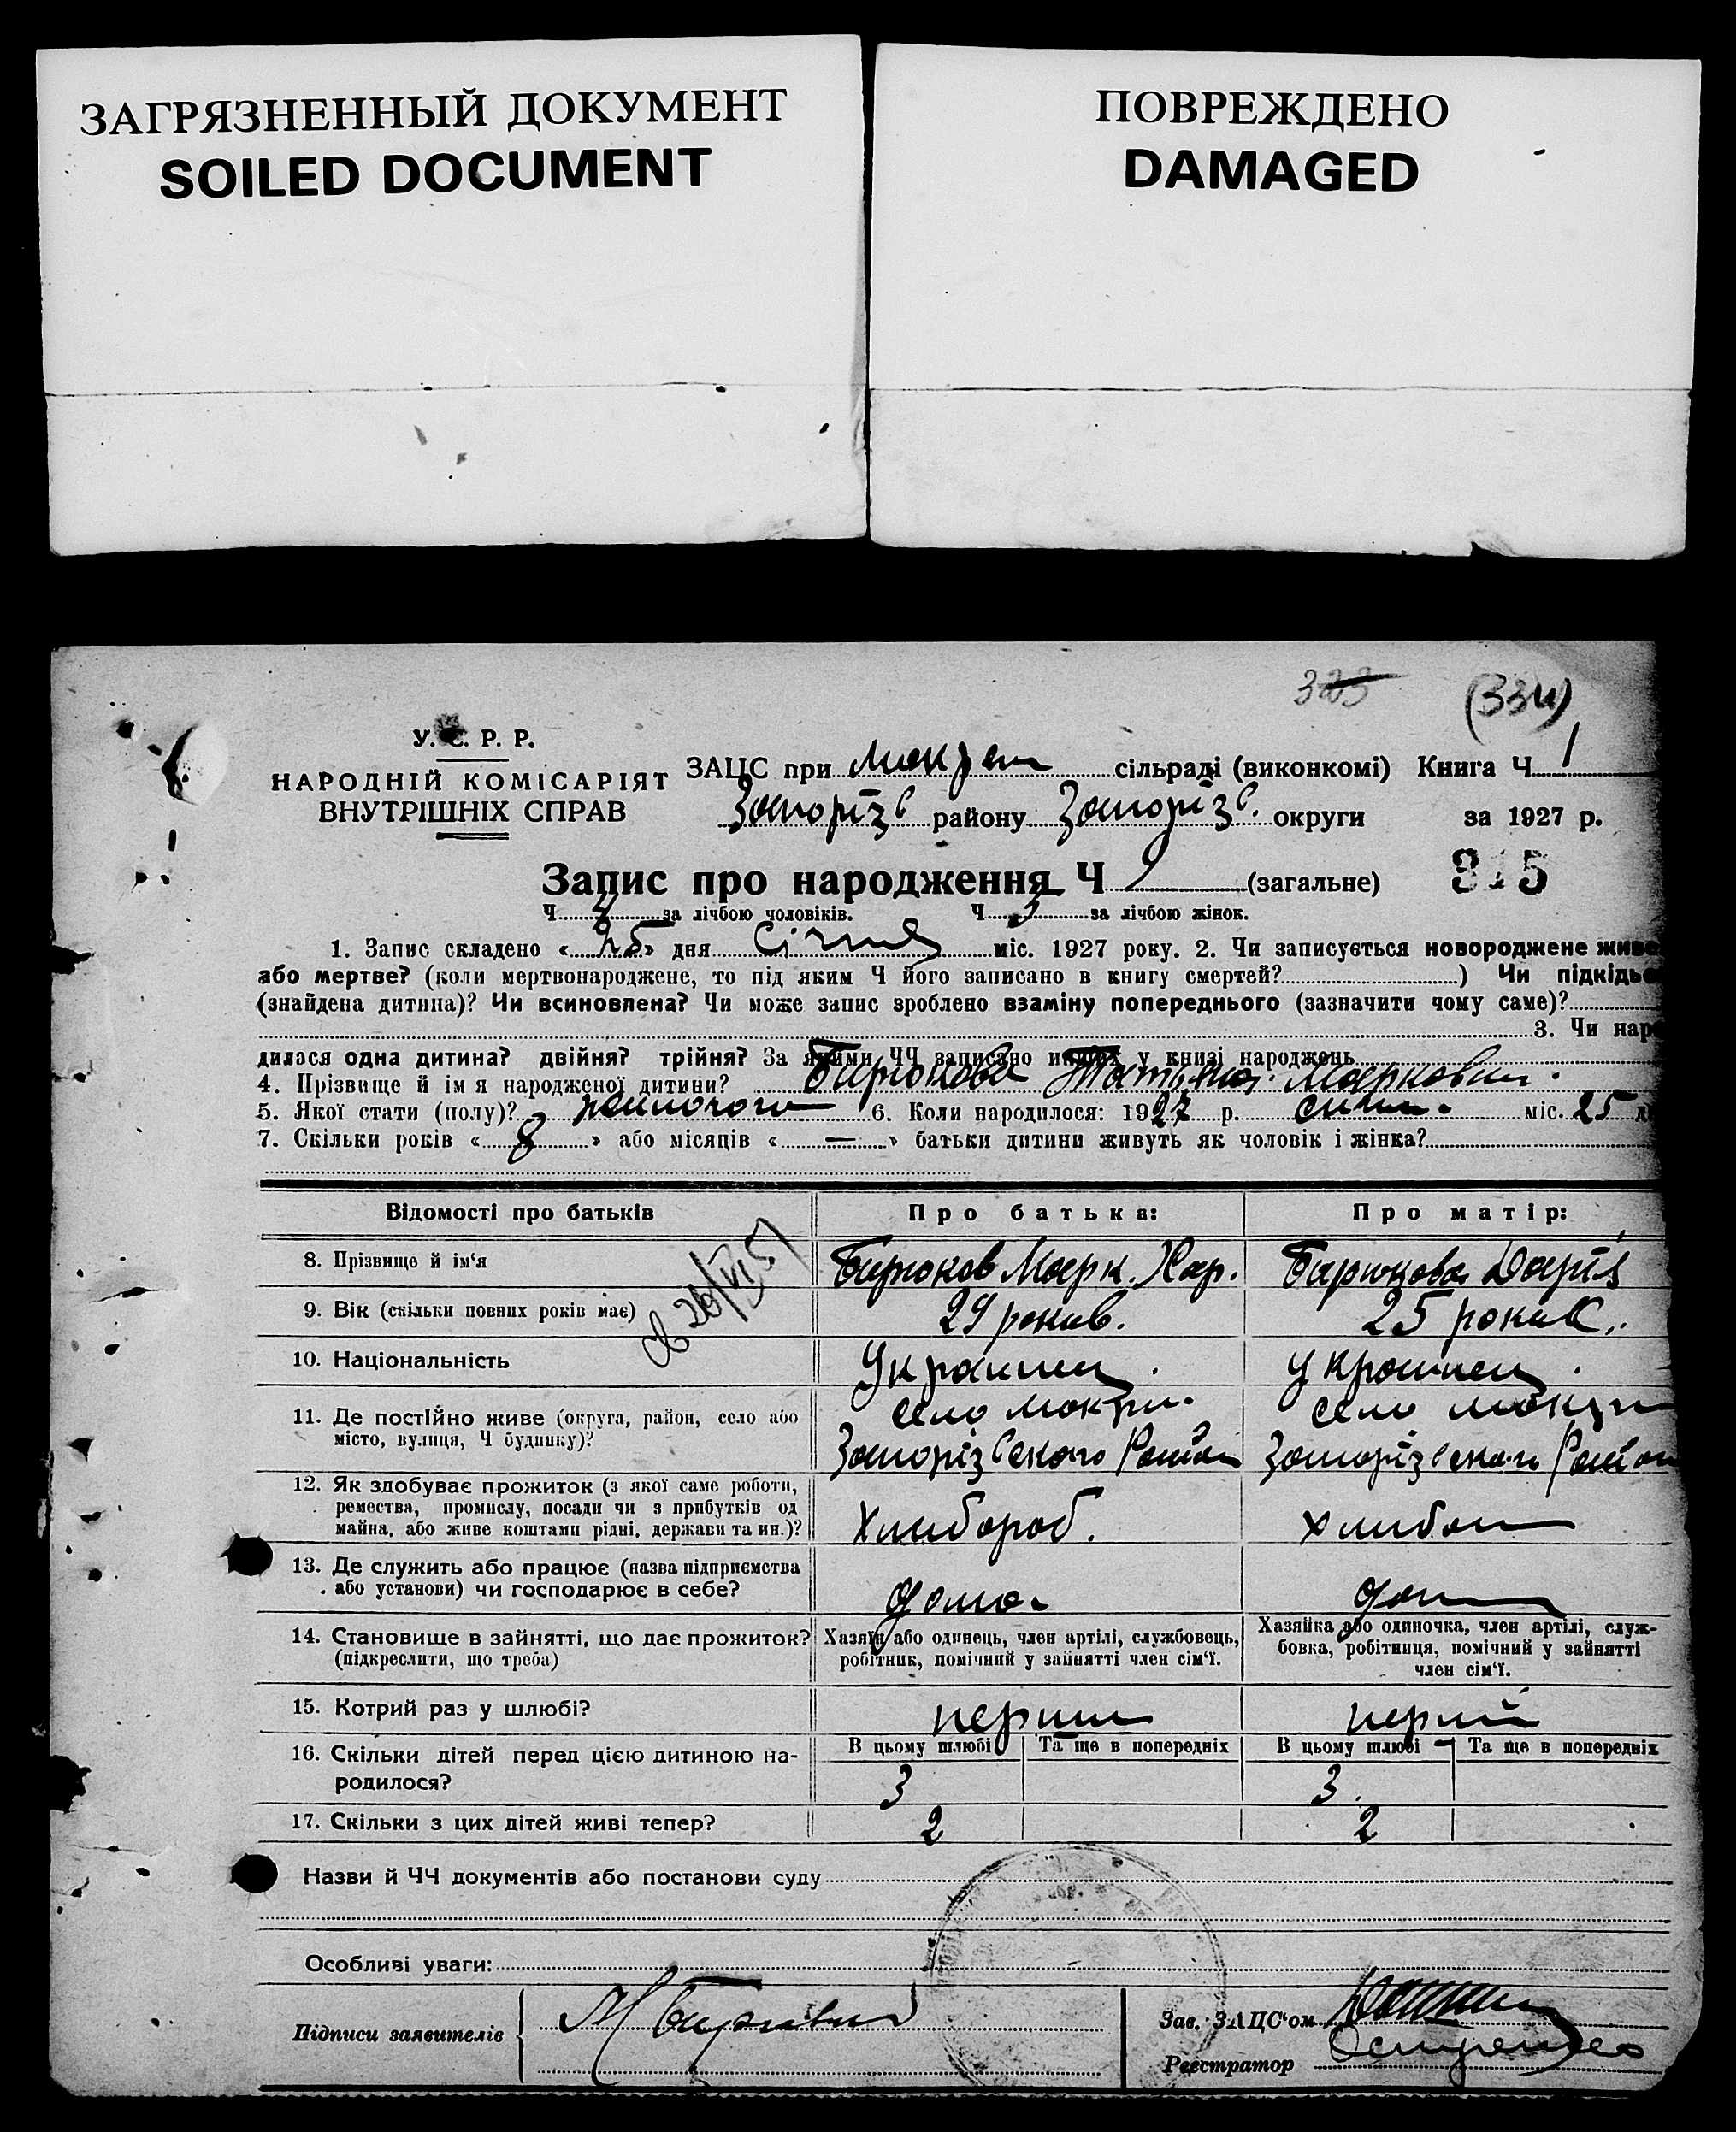 ЗАГРЯЗНЕННЫЙ ДОКУМЕНТ
SOILED DOCUMENT
ПОВРЕЖДЕНО
DAMAGED
323 (334)
У. С. Р. Р.
НАРОДНІЙ КОМІСАРІЯТ
ВНУТРІШНІХ СПРАВ
ЗАЦС при сільраді (виконкомі) Книга Ч 1
Запоріз району Запоріз. округи за 1927 р.
Запис про народження Ч 9 (загальне) 315
Ч 4 за лічбою чоловіків. Ч 5 за лічбою жінок.
1. Запис складено « 25 » дня січня міс. 1927 року. 2. Чи записується новороджене живе
або мертве? (коли мертвонароджене, то під яким Ч його записано в книгу смертей? ) Чи підкідьо
(знайдена дитина)? Чи всиновлена? Чи може запис зроблено взаміну попереднього (зазначити чому саме)?
3. Чи наро
дилася одна дитина? двійня? трійня? За якими ЧЧ записано инших у книзі народжень
4. Прізвище й ім я народженої дитини? Бирюкова Татьяна Марковна.
5. Якої стати (полу)? 6. Коли народилося: 1927 р. міс. 25
7. Скільки років « 8 » або місяців « — » батьки дитини живуть як чоловік і жінка?
Відомості про батьків Про батька: Про матір:
8. Прізвище й ім‘я Бирюков Марк. Хар. Бирюкова Дарія
9. Вік (скільки повних років має) 29 роков. 25 роков.
10. Національність Украинец. Украинец.
11. Де постійно живе (округа, район, село або місто, вулиця, Ч будинку)? село Мокри. село Мокри
Запорізского Район Запорізского Район
12. Як здобуває прожиток (з якої саме роботи,
ремества, промислу, посади чи з прибутків од
майна, або живе коштами рідні, держави та ин.)? Хлибороб. хлибо
13. Де служить або працює (назва підприємства
або установи) чи господарює в себе? дома. дома
14. Становище в зайнятті, що дає прожиток? Хазяїн або одинець, член артілі, службовець, Хазяйка або одиночка, член артілі, служ-
(підкреслити, що треба) робітник, помічний у зайнятті член сім‘ї. бовка, робітниця, помічний у зайнятті
член сім‘ї.
15. Котрий раз у шлюбі? перший перший
16. Скільки дітей перед цією дитиною на- В цьому шлюбі Та ще в попередніх В цьому шлюбі Та ще в попередніх
родилося? 3 3.
17. Скільки з цих дітей живі тепер? 2 2
Назви й ЧЧ документів або постанови суду
Особливі уваги:
Підписи заявителів
Зав. ЗАЦС‘ом
Реєстратор